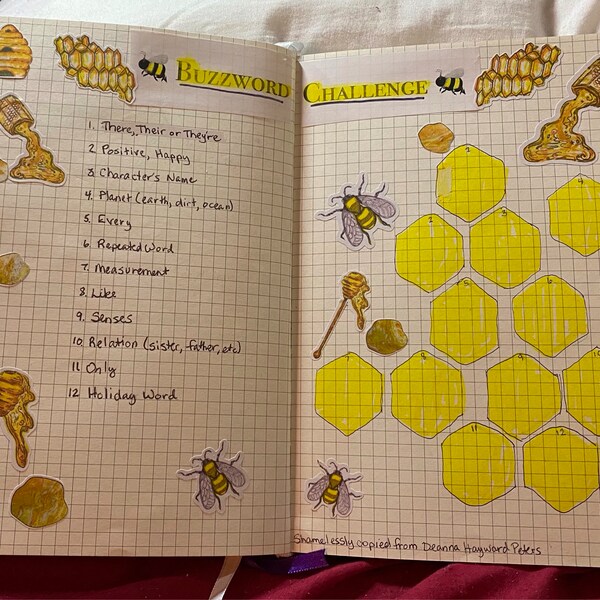 BUZZWORD CHALLENGE
1. There, Their or They're
2 Positive, Happy
3. Character's Name
4. Planet (earth, dirt, ocean)
5. Every
6. Repeated Word
7. Measurement
8. Like
9. Senses
10. Relation (sister, father, etc)
11 Only
12 Holiday Word
2
3
4
5
6
8
9
10
11
12
Shamelessly copied from Deanna Hayward Peters